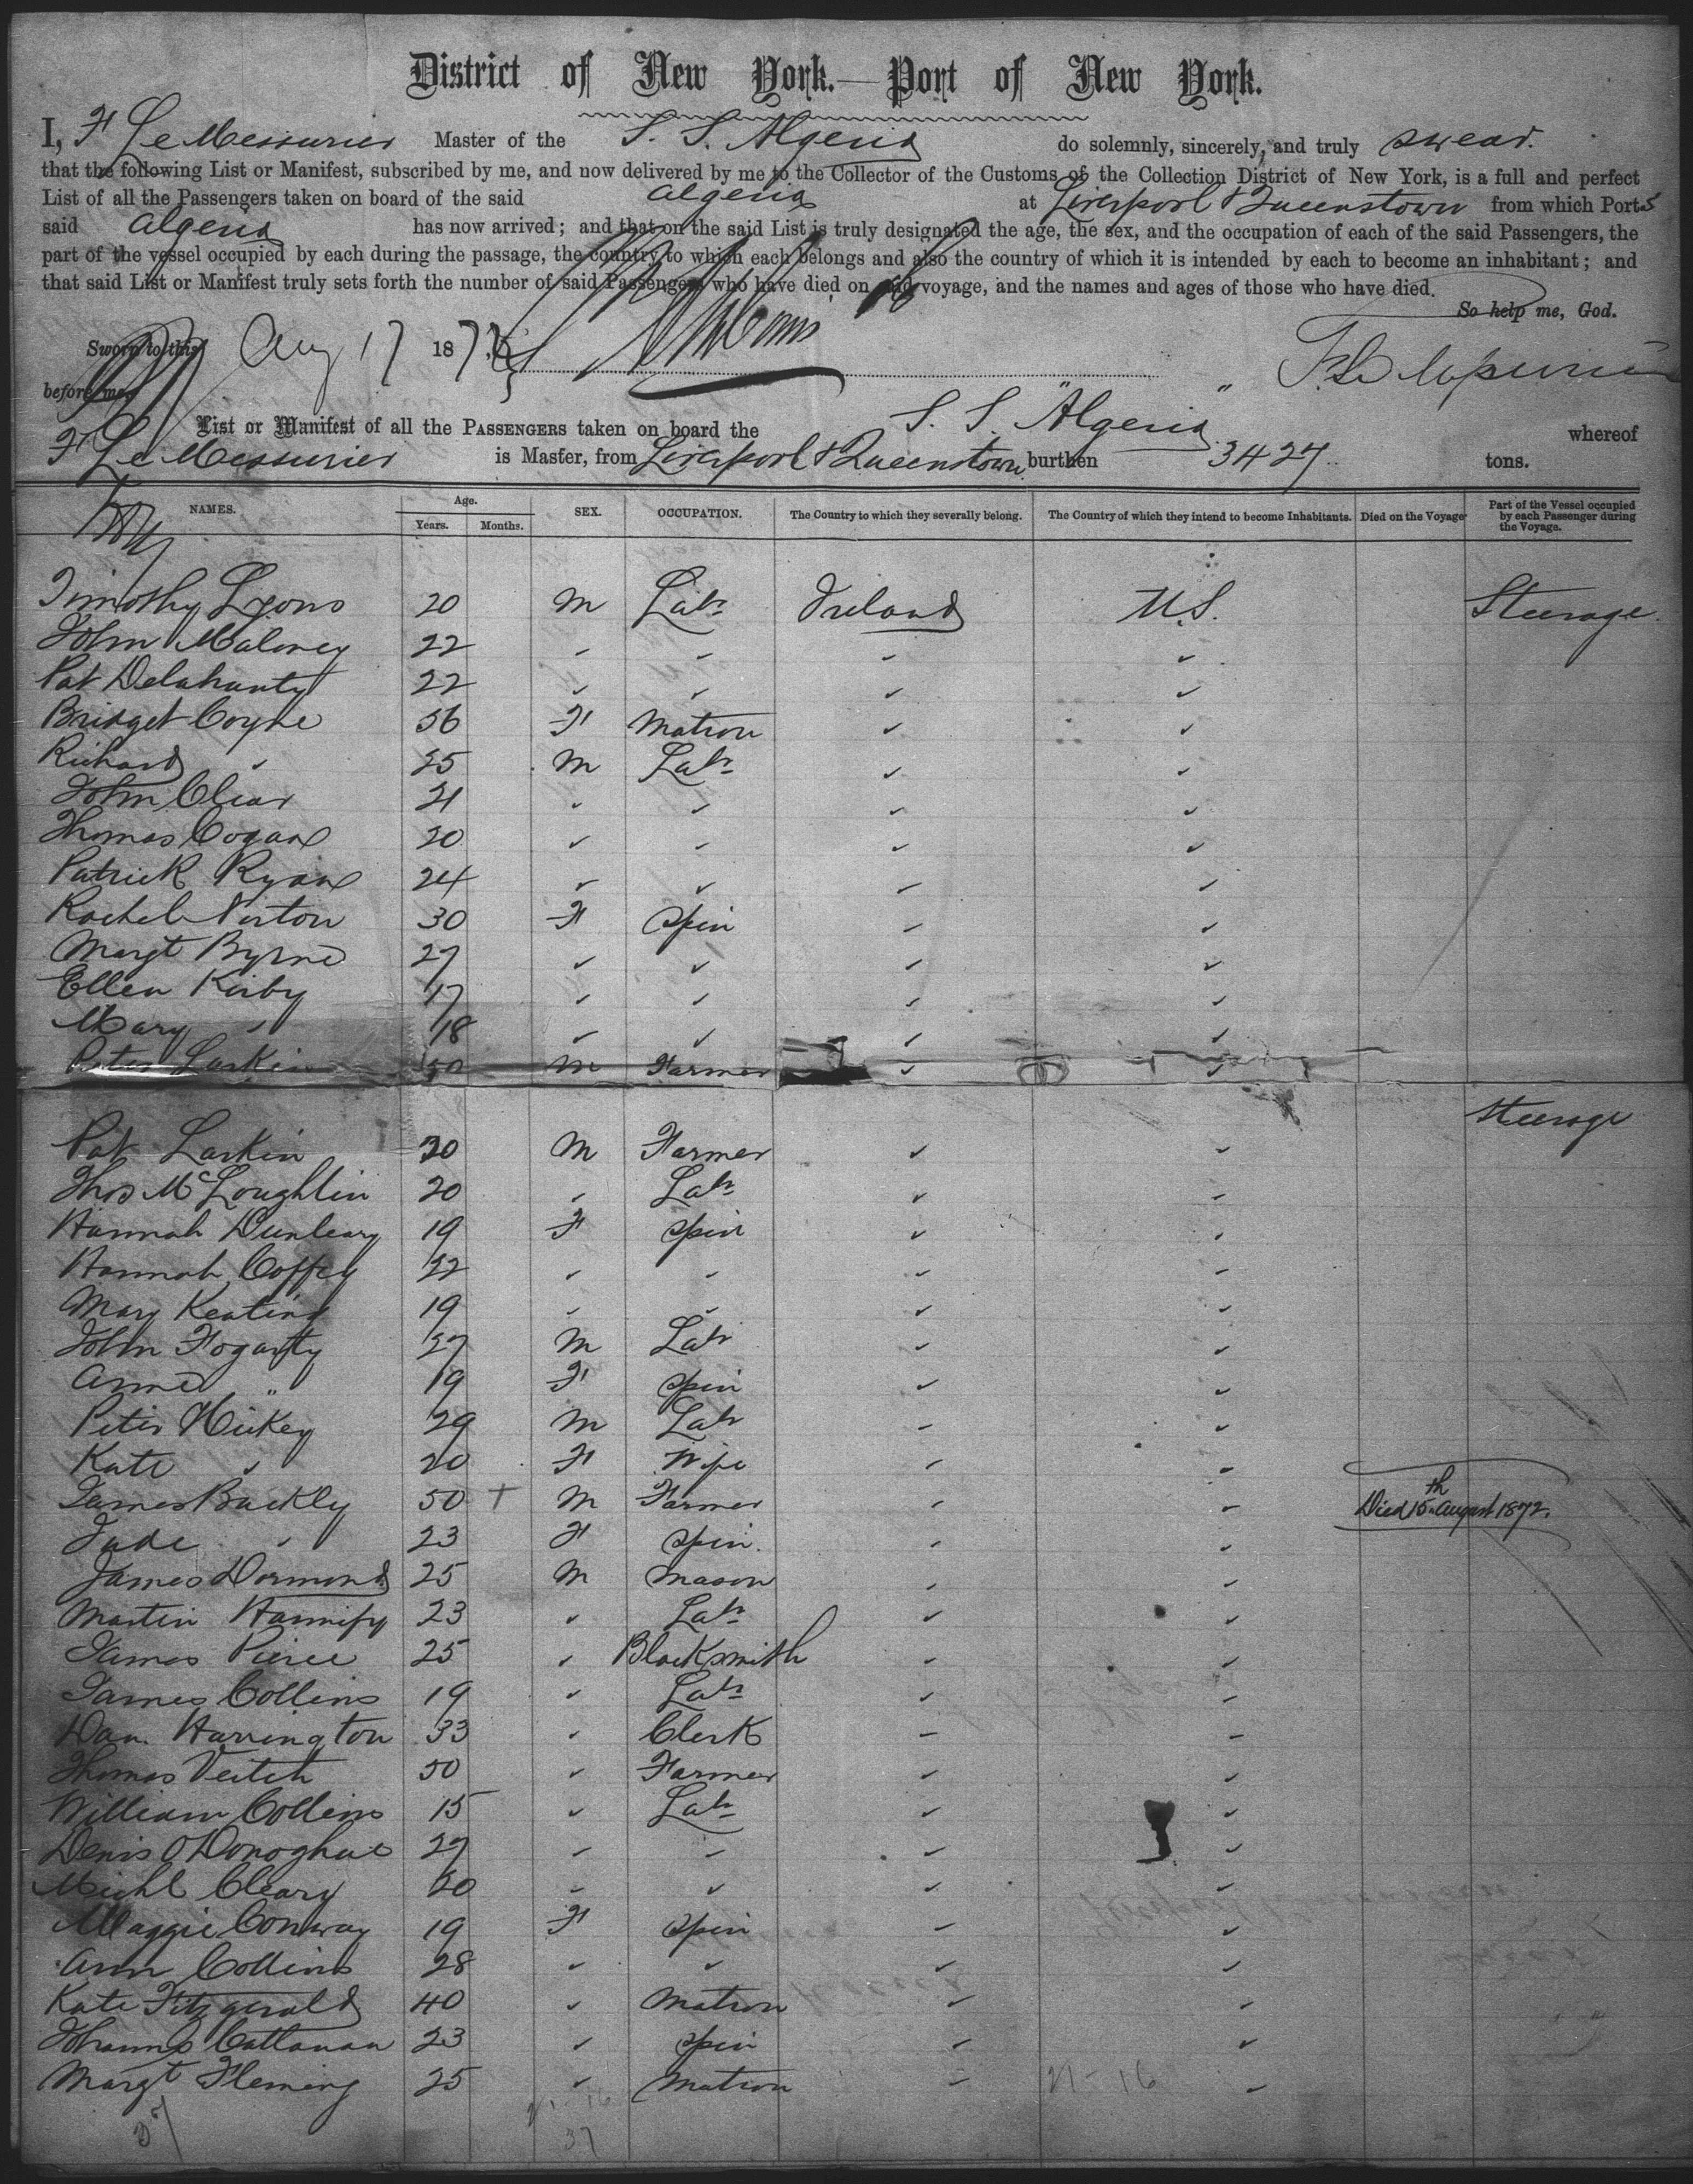 District of New York.—Port of New York.
I, F Le Messurier Master of the S. S. Algeria do solemnly, sincerely, and truly swear.
that the following List or Manifest, subscribed by me, and now delivered by me to the Collector of the Customs of the Collection District of New York, is a full and perfect
List of all the Passengers taken on board of the said Algeria at Liverpool & Queenstown from which Ports
said Algeria has now arrived; and that on the said List is truly designated the age, the sex, and the occupation of each of the said Passengers, the
part of the vessel occupied by each during the passage, the country to which each belongs and also the country of which it is intended by each to become an inhabitant; and
that said List or Manifest truly sets forth the number of said Passengers who have died on said voyage, and the names and ages of those who have died.
So help me, God.
Sworn to this Aug 17 1872
before me
List or Manifest of all the PASSENGERS taken on board the S. S. "Algeria" whereof
F Le Messurier is Master, from Liverpool & Queenstown burthen 3427 tons.
NAMES. Age. Years. Months. SEX. OCCUPATION. The Country to which they severally belong. The Country of which they intend to become Inhabitants. Died on the Voyage Part of the Vessel occupied by each Passenger during the Voyage.
Timothy Lyons 20 M Labr Ireland U.S. Steerage
John Maloney 22 " " " "
Pat Delahunty 22 " " " "
Bridget Coyne 56 F Matron " "
Richard " 25 M Labr " "
John Clear 21 " " " "
Thomas Cogan 20 " " " "
Patrick Ryan 24 " " " "
Rachel 30 F Spin " "
Margt Byrne 27 " " " "
Ellen Kirby 17 " " " "
Mary " 18 " " " "
Peter Larkin 50 M Farmer " "
Steerage
Pat Larkin 30 M Farmer " "
Thos McLoughlin 20 " Labr " "
Hannah Dunleavy 19 F Spin " "
Hannah Coffey 22 " " " "
Mary Keating 19 " " " "
John Fogarty 27 M Labr " "
Anne " 19 F Spin " "
Peter Hickey 29 M Labr " "
Kate " 20 F Wife " "
James Buckly 50 + M Farmer " " Died 15th August 1872.
Jude " 23 F Spin. " "
James Dormond 25 M Mason " "
Martin Hannify 23 " Labr " "
James Pierce 25 " Blacksmith " "
James Collins 19 " Labr " "
Dan. Harrington 33 " Clerk " "
Thomas Veitch 50 " Farmer " "
William Collins 15 " Labr " "
Denis O'Donoghue 27 " " " "
Michl Cleary 20 " " " "
Maggie Conway 19 F Spin " "
Ann Collins 28 " " " "
Kate Fitzgerald 40 " Matron " "
Johanna Callanan 23 " Spin " "
Margt Fleming 25 " Matron " "
21-16
37 21-16
37